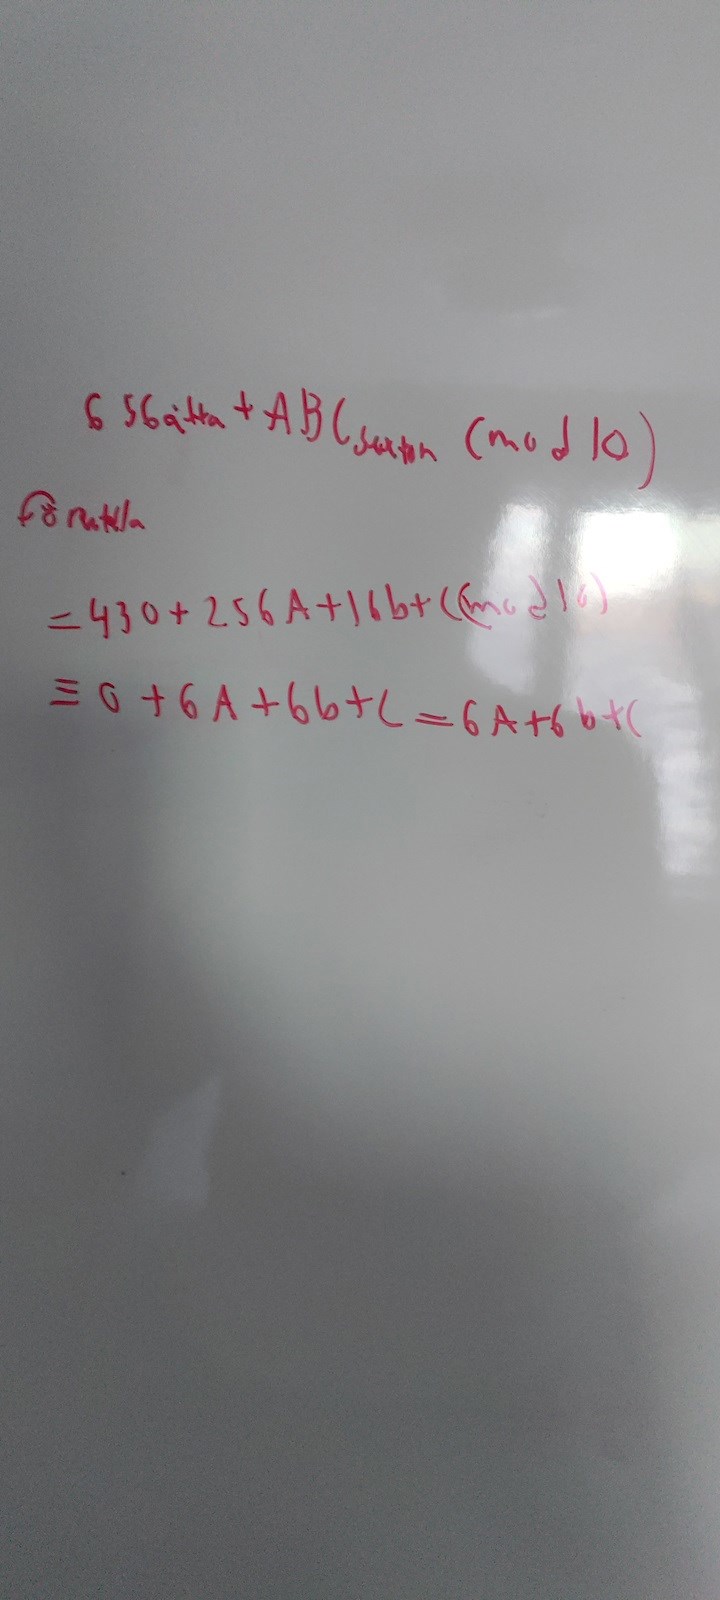 656åtta + ABCsexton (mod 10)
Förenkla
= 430 + 256A + 16b + C (mod 10)
≡ 0 + 6A + 6b + C = 6A + 6b + C